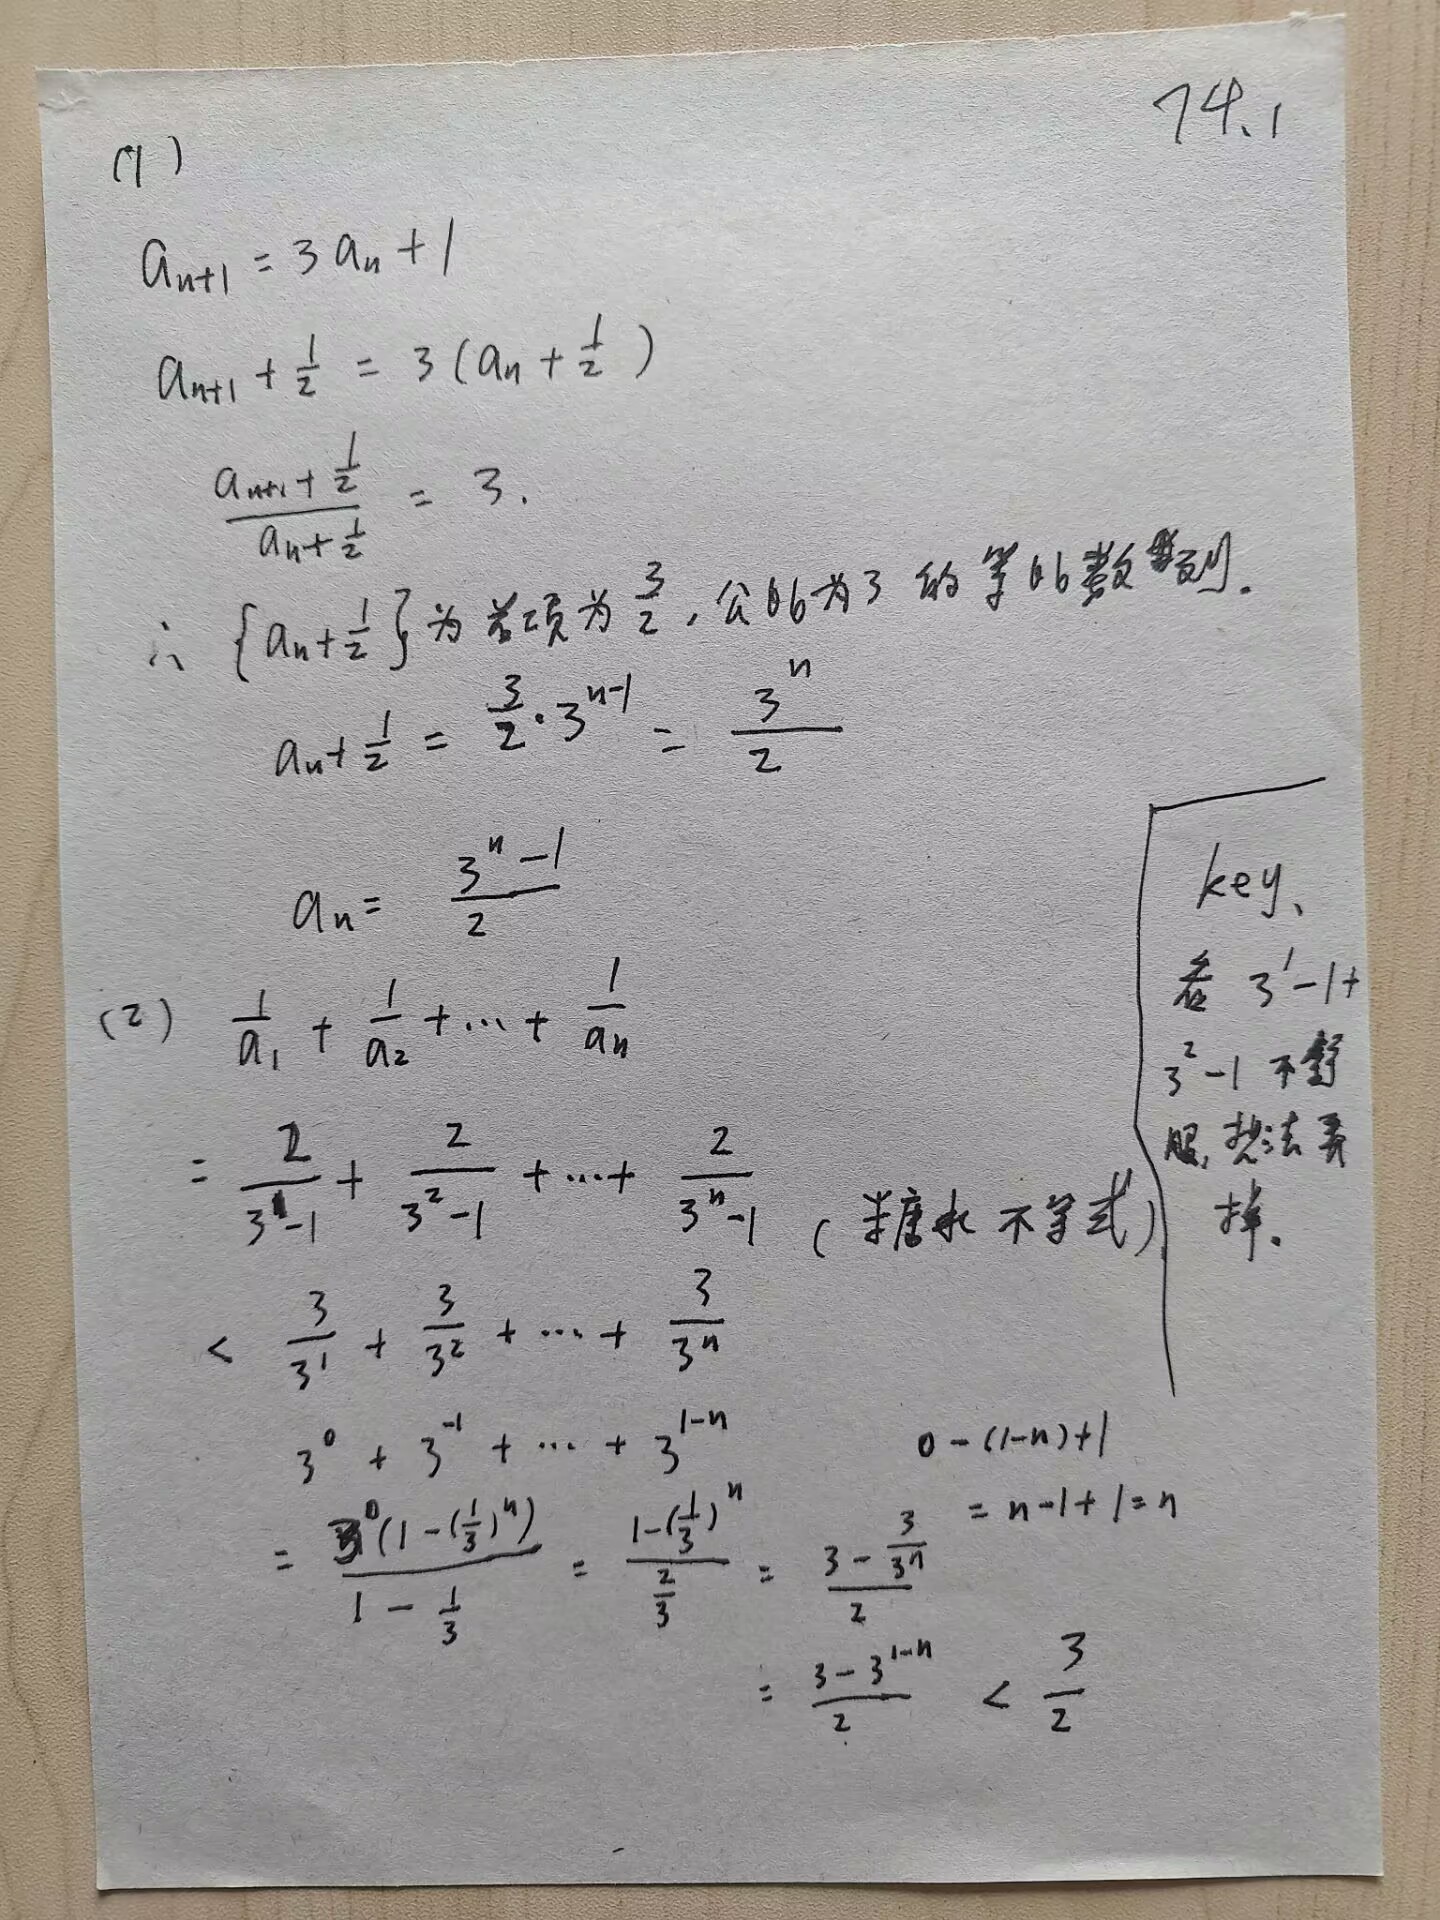 74.1
(1)
aₙ₊₁ = 3aₙ + 1
aₙ₊₁ + 1/2 = 3(aₙ + 1/2)
(aₙ₊₁ + 1/2)/(aₙ + 1/2) = 3.
∴ {aₙ + 1/2} 为首项为 3/2, 公比为3 的等比数列.
aₙ + 1/2 = 3/2 · 3ⁿ⁻¹ = 3ⁿ/2
aₙ = (3ⁿ - 1)/2
(2) 1/a₁ + 1/a₂ + ... + 1/aₙ
= 2/(3¹-1) + 2/(3²-1) + ... + 2/(3ⁿ-1) (糖水不等式)
< 3/3¹ + 3/3² + ... + 3/3ⁿ
3⁰ + 3⁻¹ + ... + 3¹⁻ⁿ
= 3⁰(1-(1/3)ⁿ)/(1 - 1/3) = (1-(1/3)ⁿ)/(2/3) = (3 - 3/3ⁿ)/2
= (3 - 3¹⁻ⁿ)/2 < 3/2
0 - (1-n) + 1
= n - 1 + 1 = n
key、
看 3¹-1+
3²-1 不舒
服, 想法弄
掉.